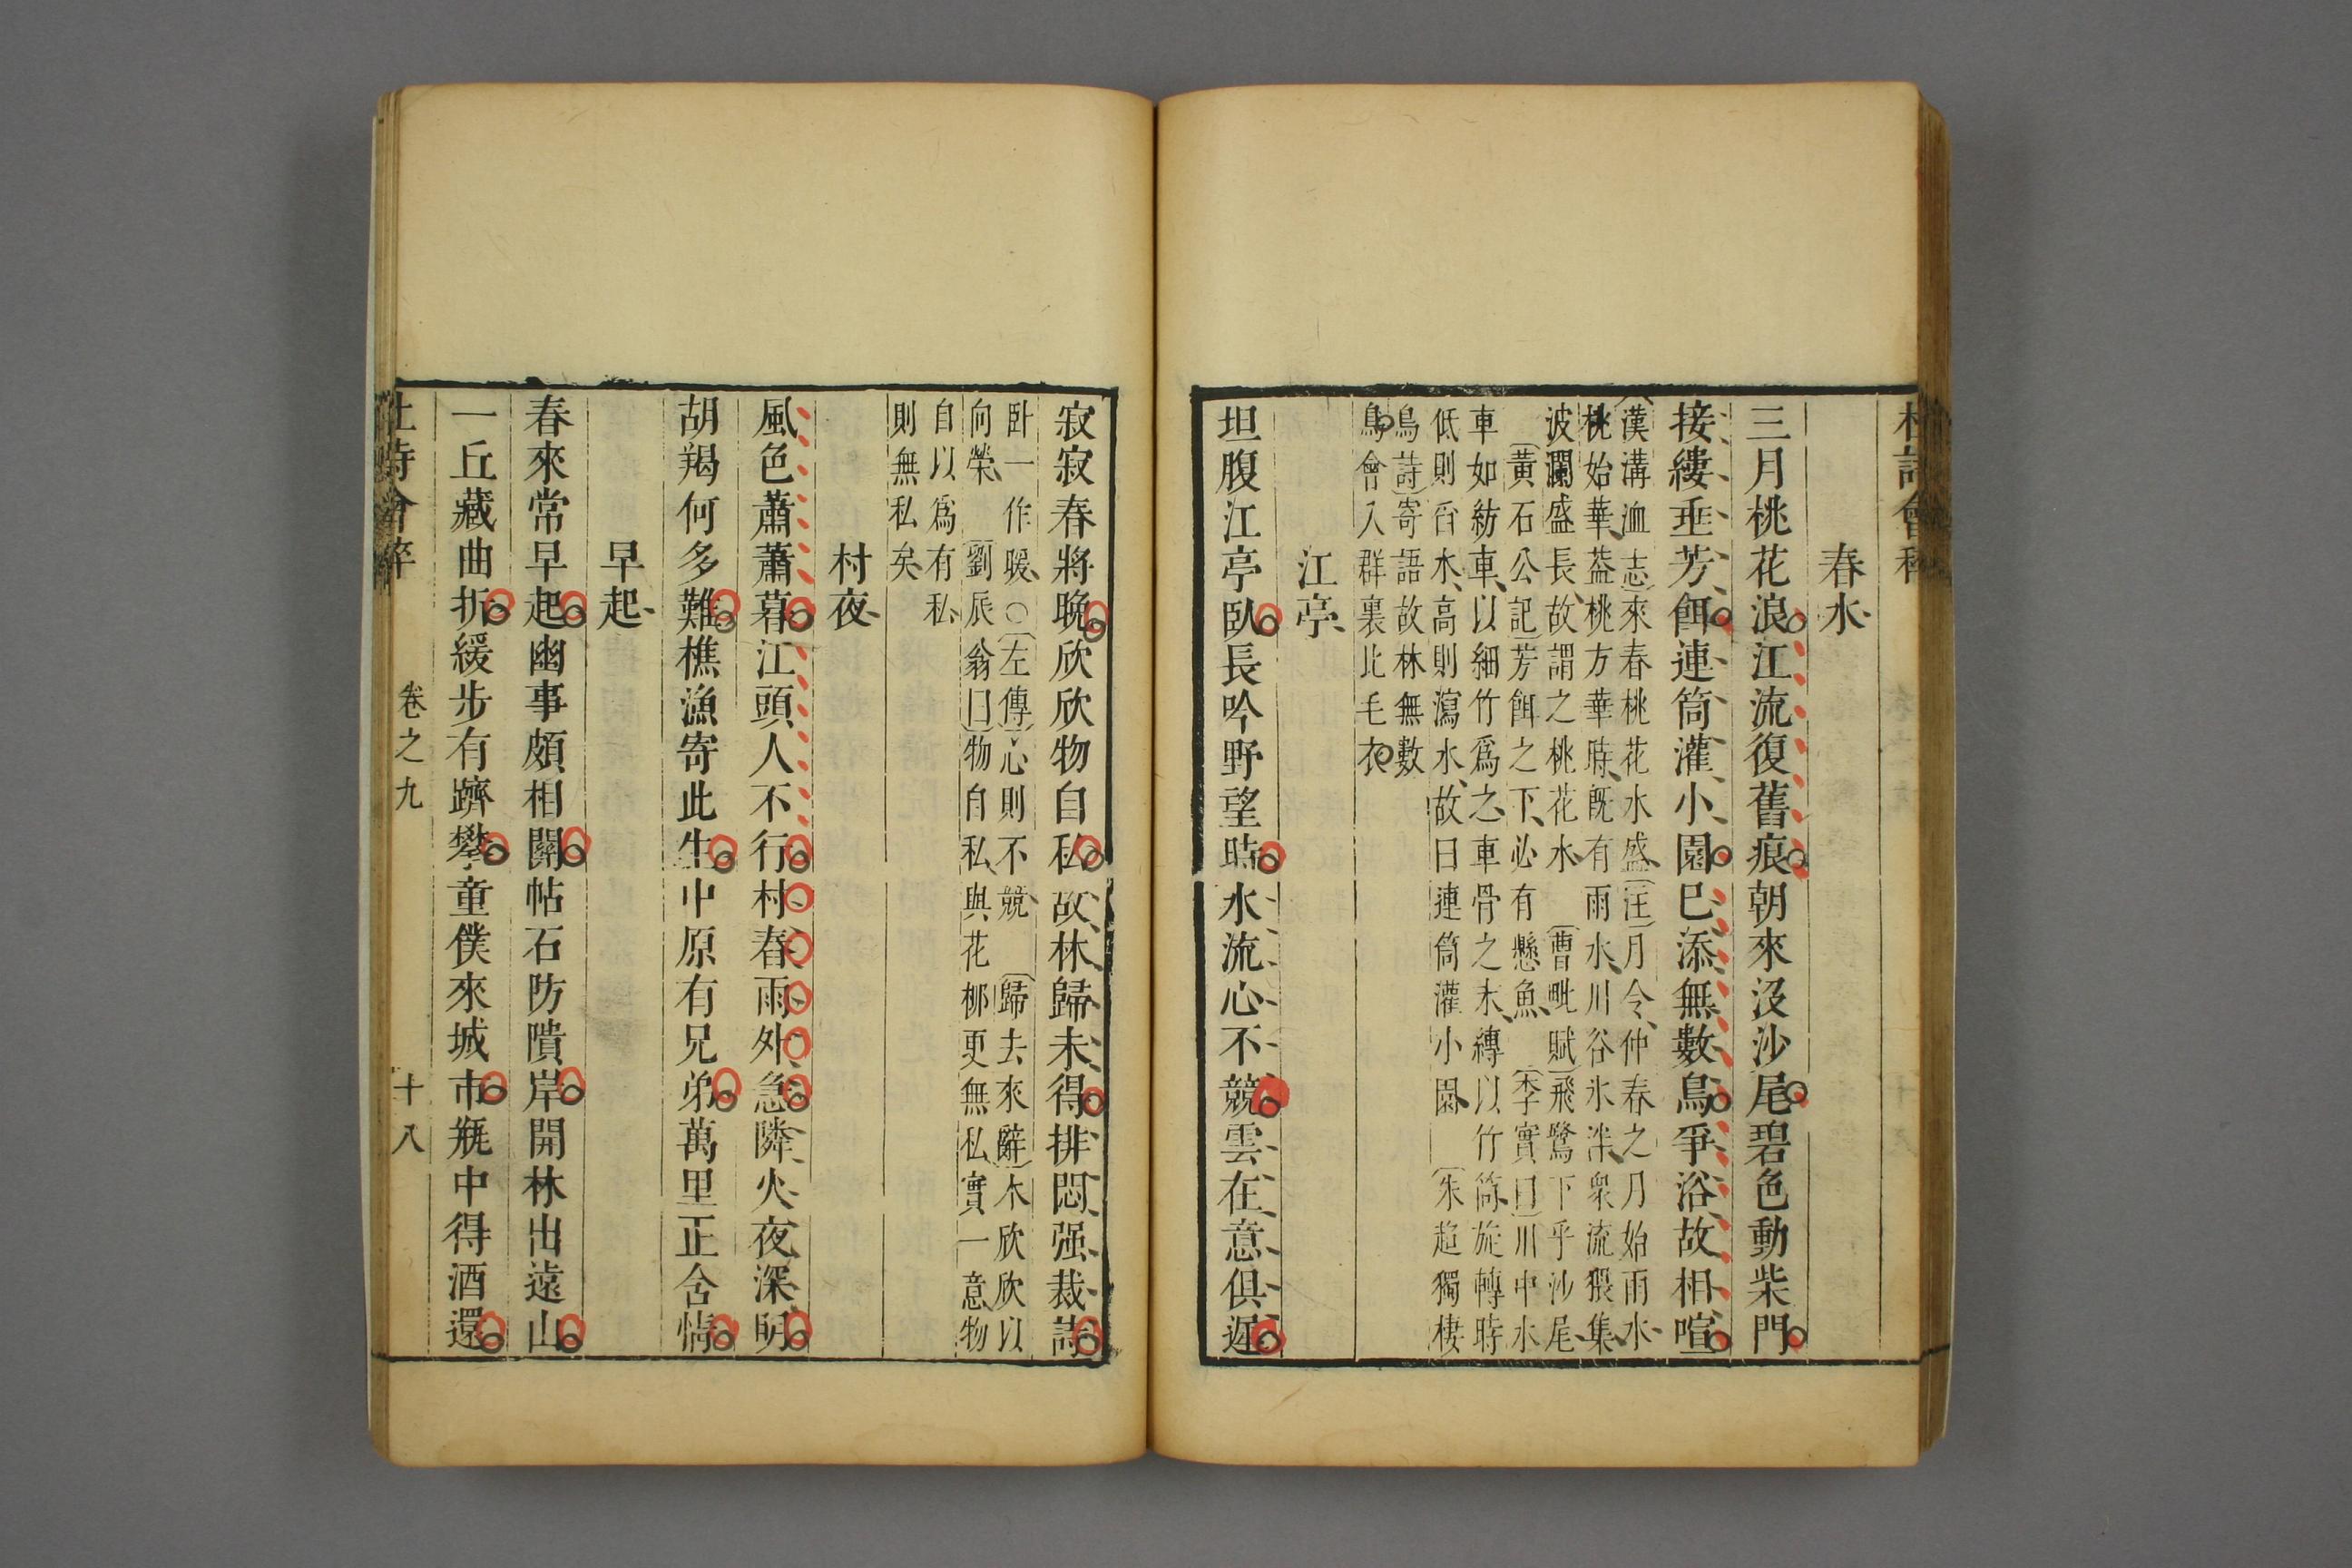 杜詩會稡
春水
三月桃花浪江流復舊痕朝來沒沙尾碧色動柴門
接縷垂芳餌連筒灌小園已添無數鳥爭浴故相喧
漢溝洫志來春桃花水盛汪月令仲春之月始雨水
桃始華葢桃方華時旣有雨水川谷氷泮衆流猥集
波瀾盛長故謂之桃花水 曹毗賦飛鷺下乎沙尾
黃石公記芳餌之下必有懸魚 李實曰川中水
車如紡車以細竹爲之車骨之末縛以竹筒旋轉時
低則舀水高則瀉水故曰連筒灌小園 朱超獨棲
鳥詩寄語故林無數
鳥會入群裏比毛衣
江亭
坦腹江亭臥長吟野望時水流心不競雲在意俱遲
寂寂春將晚欣欣物自私故林歸未得排悶强裁詩
卧一作暖○左傳心則不競 歸去來辭木欣欣以
向榮 劉辰翁曰物自私與花柳更無私實一意物
自以爲有私
則無私矣
村夜
風色蕭蕭暮江頭人不行村舂雨外急隣火夜深明
胡羯何多難樵漁寄此生中原有兄弟萬里正含情
早起
春來常早起幽事頗相關帖石防隤岸開林出遠山
一丘藏曲折緩步有躋攀童僕來城市瓶中得酒還
杜詩會稡 卷之九 十八